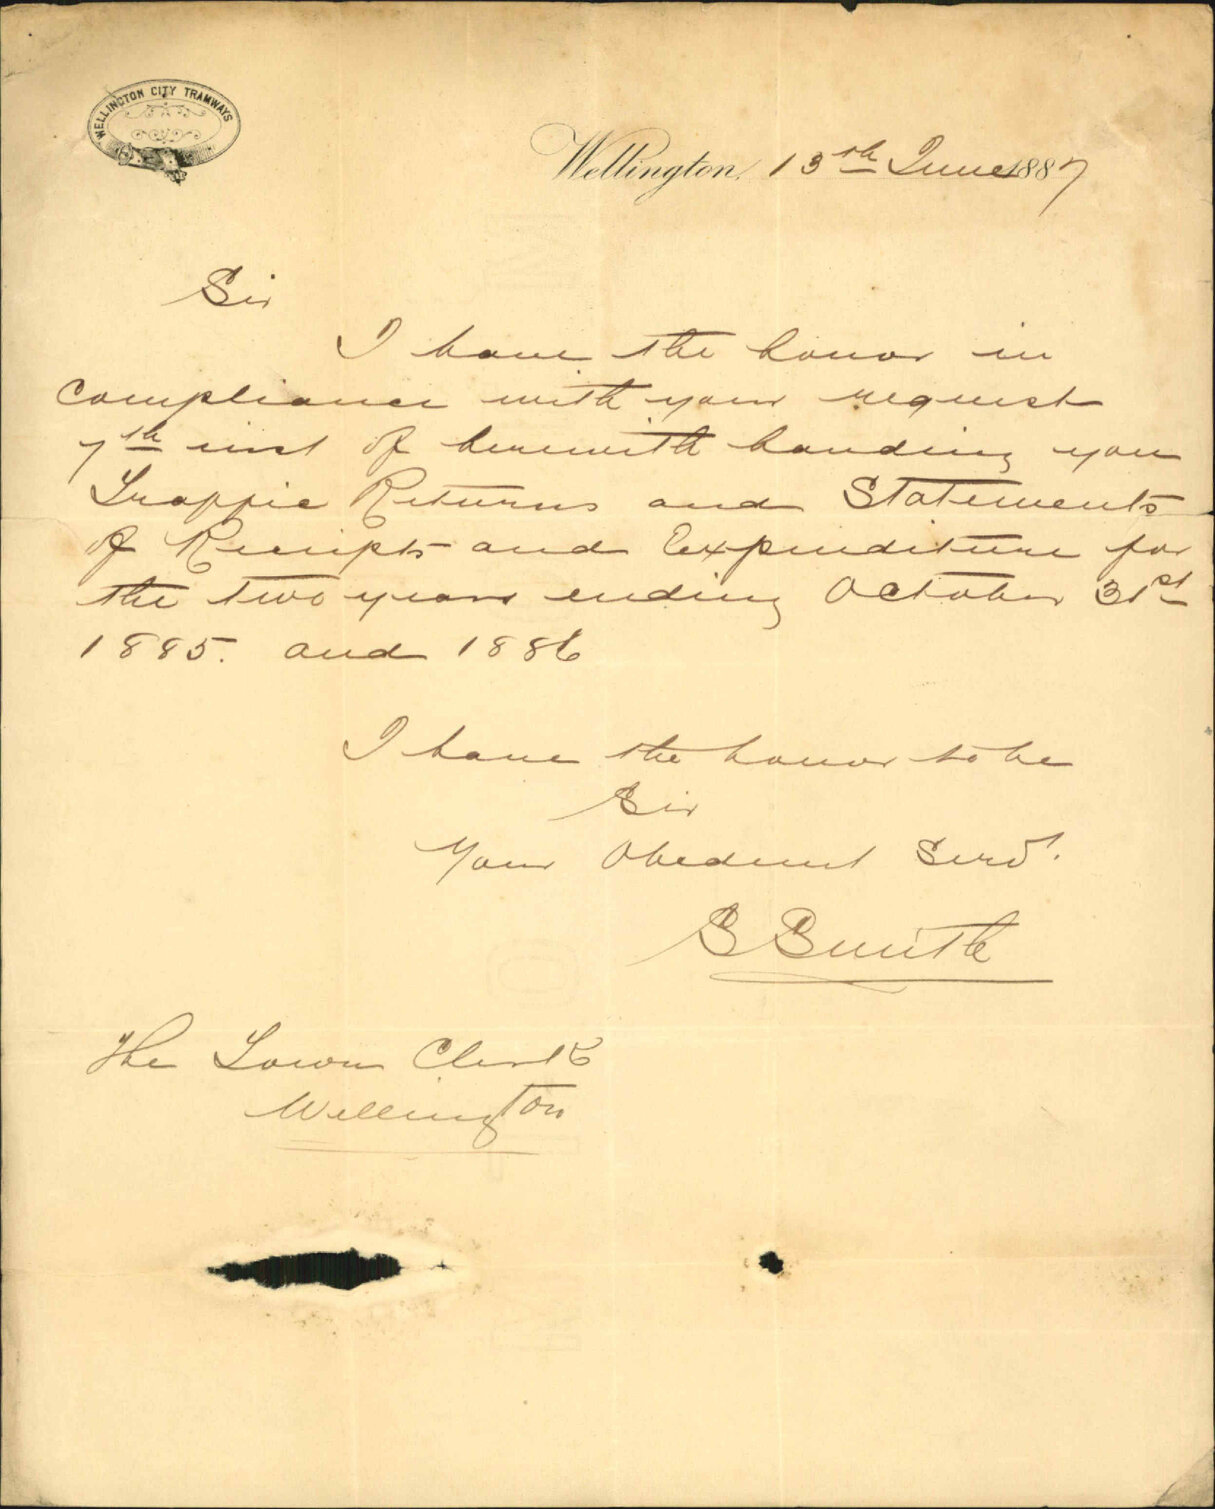 WELLINGTON CITY TRAMWAYS
Wellington, 13th June 1887
Sir
I have the honor in
compliance with your request
7th inst of herewith handing you
Traffic Returns and Statements
of Receipts and Expenditure for
the two years ending October 31st
1885. and 1886
I have the honor to be
Sir
Your Obedient Servt.
S Smith
The Town Clerk
Wellington